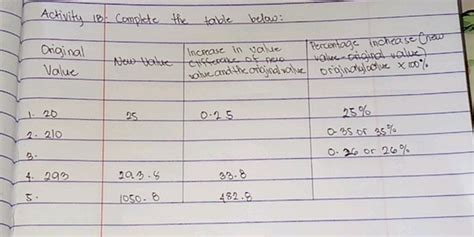 Activity 1B: Complete the table below:
Original Value
New Value
Increase in value (difference of new value and the original value
Percentage increase (new value - original value) original value x 100%
1. 20 25 0.25 25%
2. 210 0.35 or 35%
3. 0.26 or 26%
4. 293 293.8 33.8
5. 1050.8 482.8